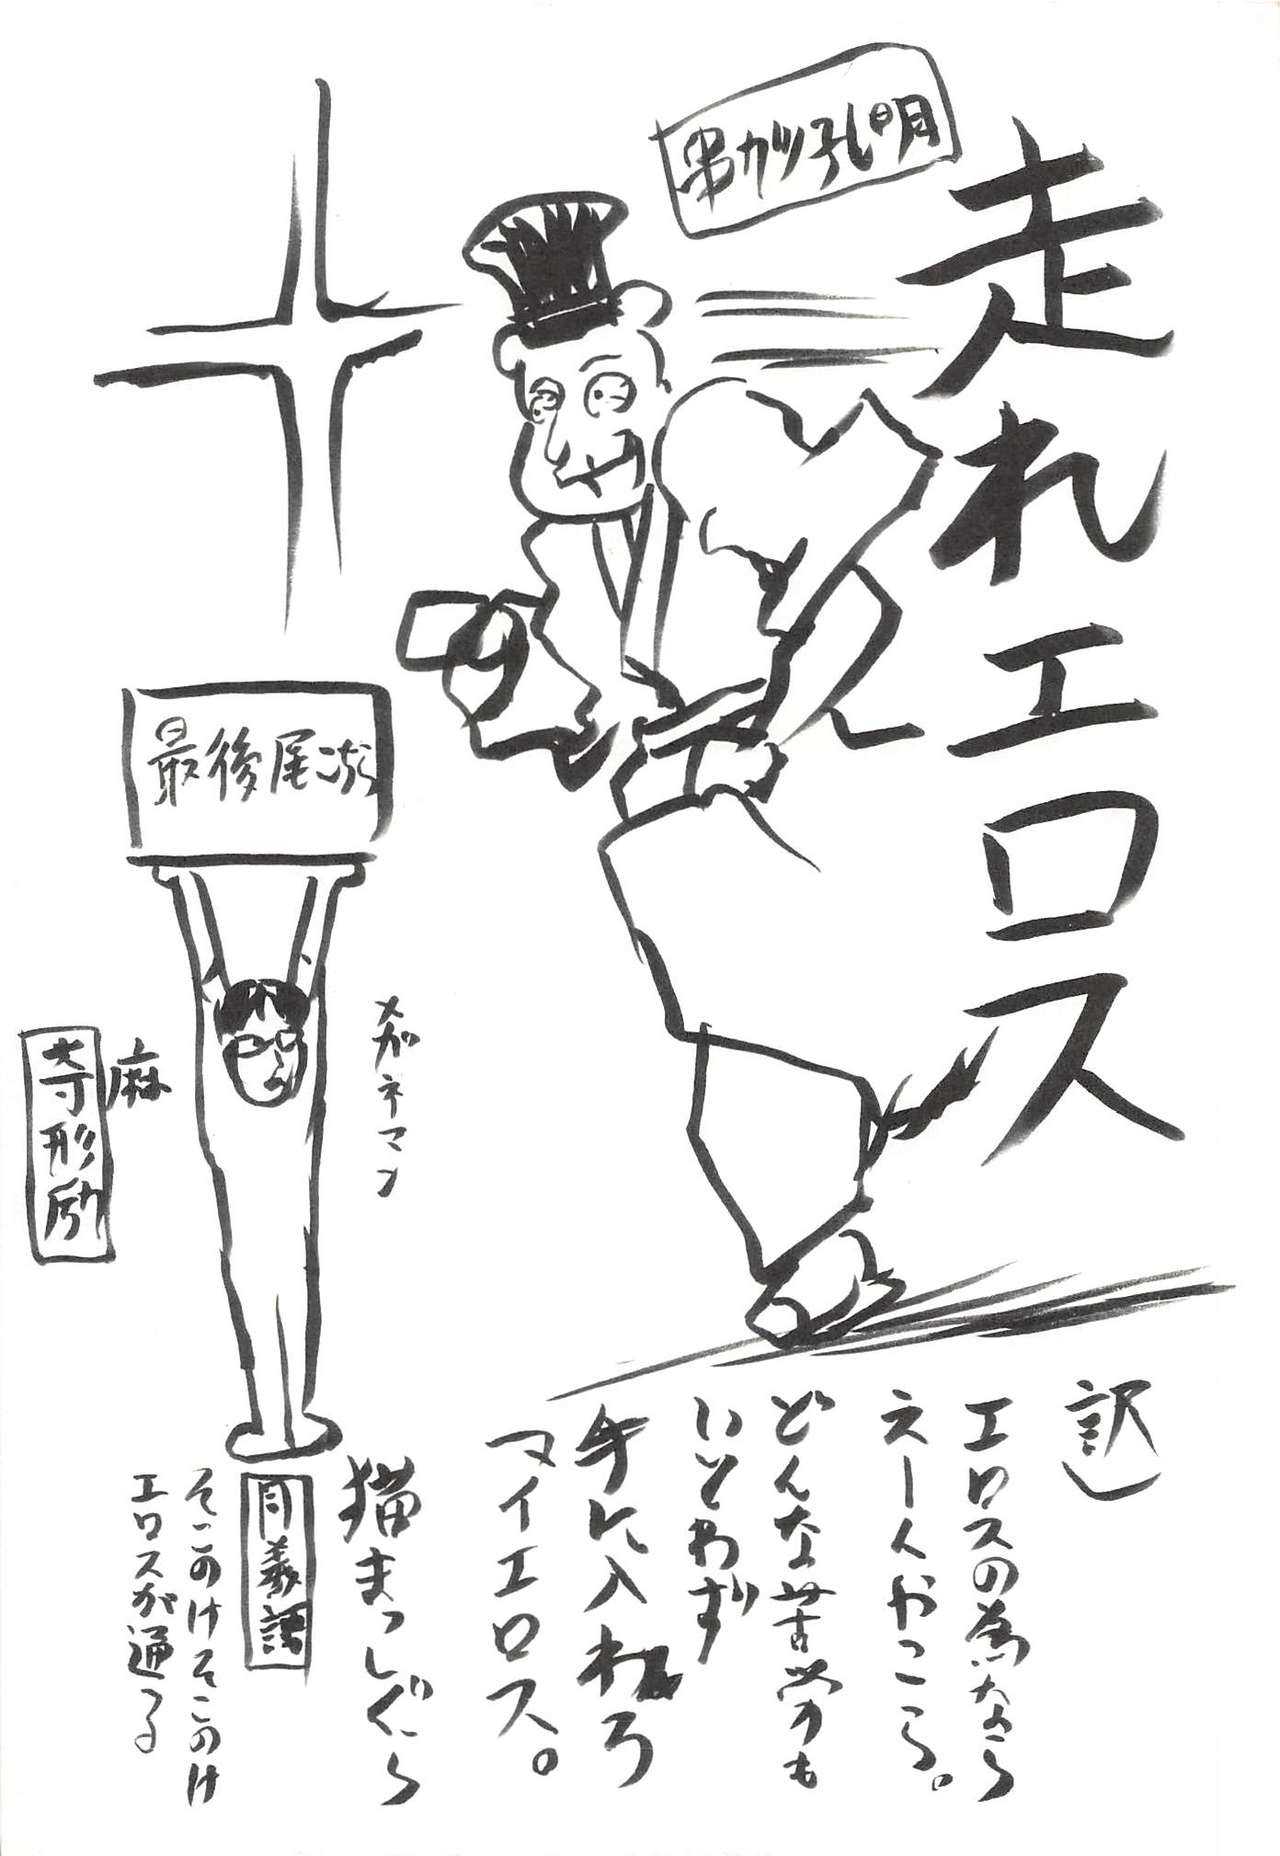 走れエロス
串カツ孔明
最後尾
メガネマン
麻
寺形励
訳)
エロスの為なら
えーんやこら。
どんな苦労も
いとわず
手に入れろ
マイエロス。
猫まっしぐら
同義語
そこのけそこのけ
エロスが通る